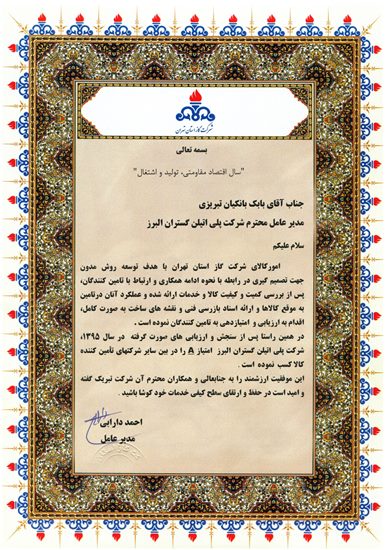 شرکت گاز استان تهران
بسمه تعالی
"سال اقتصاد مقاومتی، تولید و اشتغال"
جناب آقای بابک بانکیان تبریزی
مدیر عامل محترم شرکت پلی اتیلن گستران البرز
سلام علیکم
امورکالای شرکت گاز استان تهران با هدف توسعه روش مدون
جهت تصمیم گیری در رابطه با نحوه ادامه همکاری و ارتباط با تامین کنندگان،
پس از بررسی کمیت و کیفیت کالا و خدمات ارائه شده و عملکرد آنان درتامین
به موقع کالاها و ارائه اسناد بازرسی فنی و نقشه های ساخت به صورت کامل،
اقدام به ارزیابی و امتیازدهی به تامین کنندگان نموده است .
در همین راستا پس از سنجش و ارزیابی های صورت گرفته در سال ۱۳۹۵،
شرکت پلی اتیلن گستران البرز امتیاز A را در بین سایر شرکتهای تأمین کننده
کالا کسب نموده است .
این موفقیت ارزشمند را به جنابعالی و همکاران محترم آن شرکت تبریک گفته
و امید است در حفظ و ارتقای سطح کیفی خدمات خود کوشا باشید .
احمد دارابی
مدیر عامل